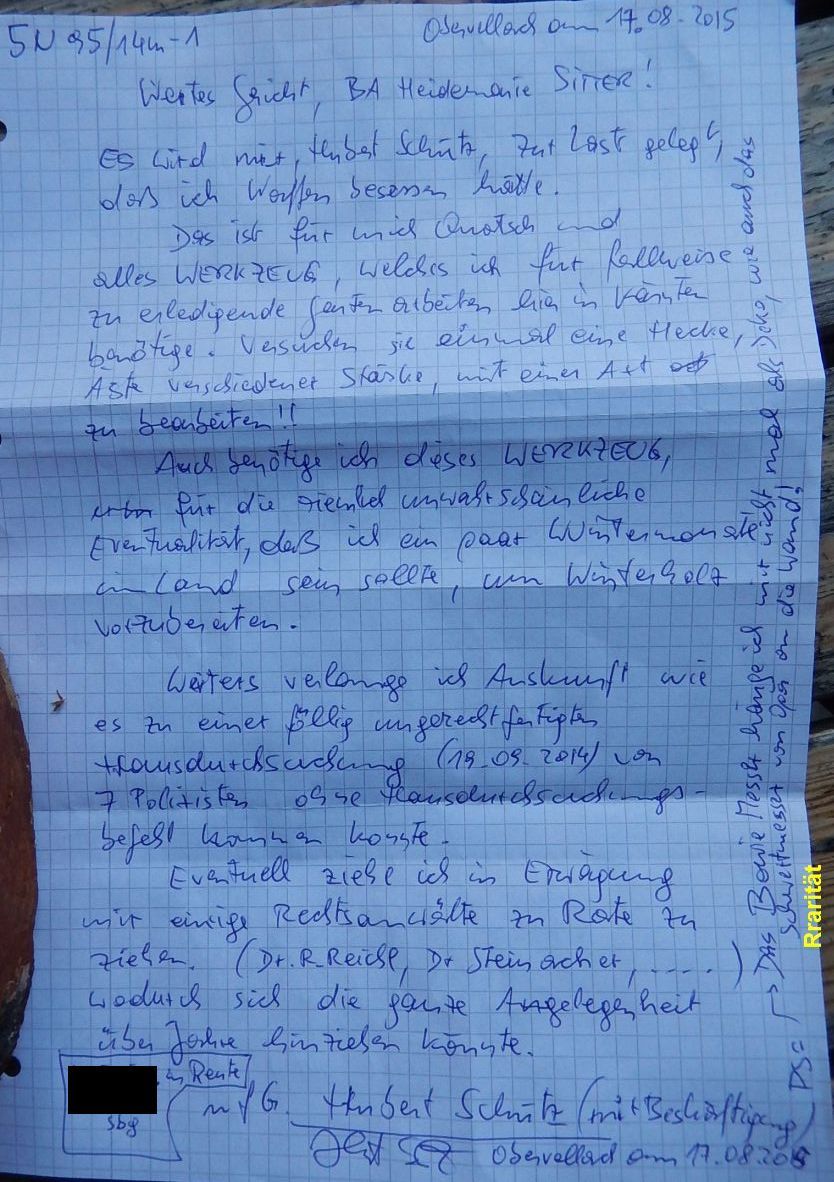 5N 95/14m-1
Obervellach am 17.08.2015
Wertes Gricht, BA Heidemarie SITTER!
ES wird mir, Hubert Schütz, zur Last gelegt,
daß ich Waffen besessen hätte.
Das ist für mich Quatsch und
alles WERKZEUG, welches ich für fallweise
zu erledigende Gartenarbeiten hier in Kärnten
benötige. Versuchen sie einmal eine Hecke,
Äste verschiedener Stärke, mit einer Axt
zu bearbeiten!!
Auch benötige ich dieses WERKZEUG,
für die ziemlich unwahrscheinliche
Eventualität, daß ich ein paar Wintermonate
im Land sein sollte, um Winterholz
vorzubereiten.
Weiters verlange ich Auskunft wie
es zu einer föllig ungerechtfertigten
Hausdurchsuchung (19.09.2014) von
7 Polizisten ohne Hausdurchsuchungs-
befehl kommen konnte.
Eventuell ziehe ich in Erwägung
mir einige Rechtsanwälte zu Rate zu
ziehen. (Dr. R. Reichl, Dr Steinacher, .....)
wodurch sich die ganze Angelegenheit
über Jahre hinziehen könnte.
in Rente
sbg
mfG. Hubert Schütz (mit Beschäftigung)
Obervellach am 17.08.2015
PS= Das Bowie Messer hänge ich mir nicht mal als Deko, wie auch das
Schnittmesser von Opa an die Wand!
Rrarität